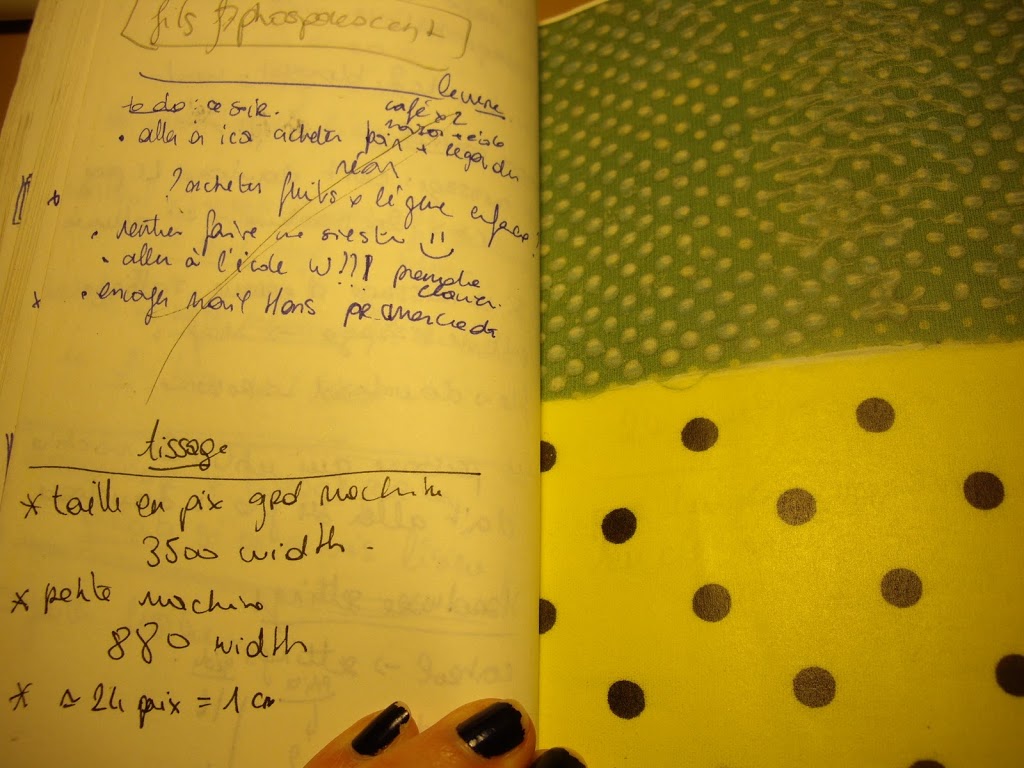 fils phosphorescent
to do : ce soir.
levure
café x2
• aller à ica acheter pain +
? acheter fruits + légume
• rentrer faire une sieste :)
• aller à l'école W!!! prendre
clavier.
* • envoyer mail Hans
tissage
* taille en pix grd machine
3500 width -
* petite machine
880 width
* ≃ 24 pix = 1 cm